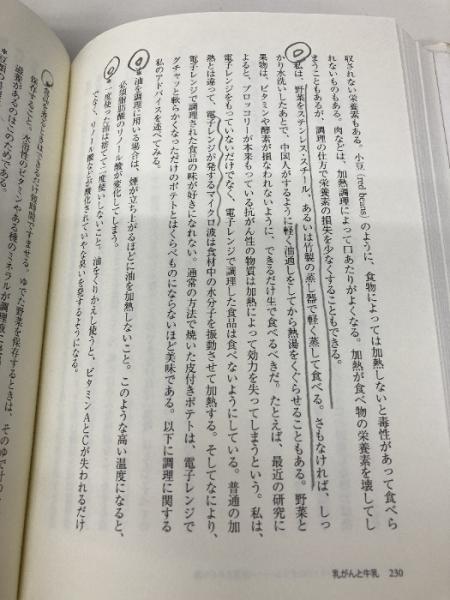 収されない栄養素もある。小豆（red beans）のように、食物によっては加熱しないと毒性があって食べら
れないものもある。肉などは、加熱調理によって口あたりがよくなる。加熱が食べ物の栄養素を壊してし
まうこともあるが、調理の仕方で栄養素の損失を少なくすることもできる。
私は、野菜をステンレス・スチール、あるいは竹製の蒸し器で軽く蒸して食べる。さもなければ、しっ
かり水洗いしたあとで、中国人がするように軽く油通しをしてから熱湯をくぐらせることもある。野菜と
果物は、ビタミンや酵素が損なわれないように、できるだけ生で食べるべきだ。たとえば、最近の研究に
よると、ブロッコリーが本来もっている抗がん性の物質は加熱によって効力を失ってしまうという。私は、
電子レンジをもっていないだけでなく、電子レンジで調理した食品は食べないようにしている。普通の加
熱とは違って、電子レンジが発するマイクロ波は食材中の水分子を振動させて加熱する。そしてなにより、
電子レンジで調理された食品の味が好きになれない。通常の方法で焼いた皮付きポテトは、電子レンジで
グチャッと軟らかくなっただけのポテトとはくらべものにならないほど美味である。以下に調理に関する
私のアドバイスを述べてみる。
油を調理に用いる場合は、煙が立ち上がるほどに油を加熱しないこと。このような高い温度になると、
必須脂肪酸のリノール酸が変化してしまう。
一度使った油は捨てて二度使いしないこと。油をくりかえし使うと、ビタミンAとCが失われるだけ
でなく、リノール酸などが酸化されていやな臭いを発するようになる。
できるだけ短時間ですませる。ゆでた野菜を保存するときは、そのゆで汁
保存すること。水溶性のビタミンやある種のミネラルが調理液に
必要があるのはこのためである。
乳がんと牛乳 230